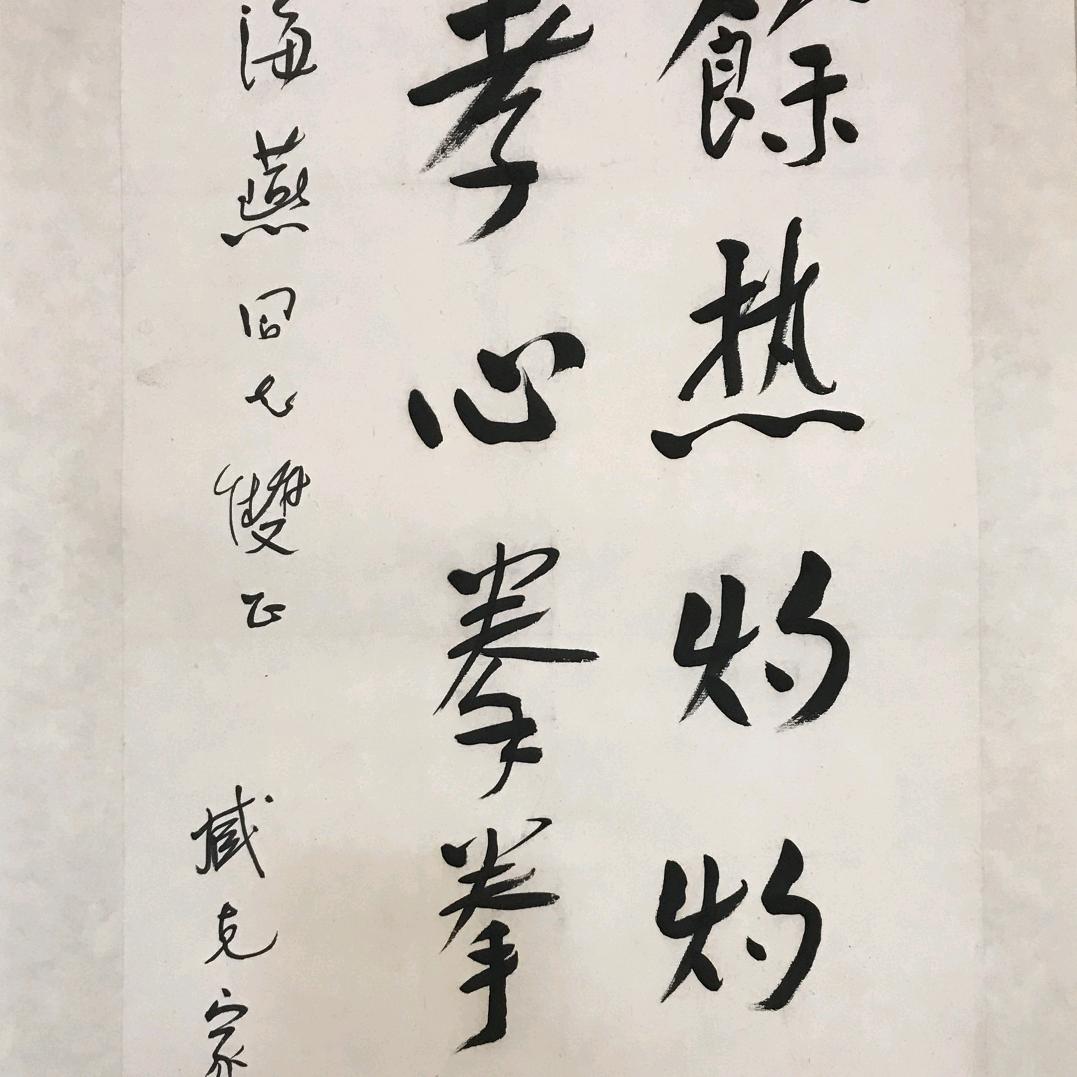 餘热灼灼
孝心拳拳
海燕同志雙正
臧克家